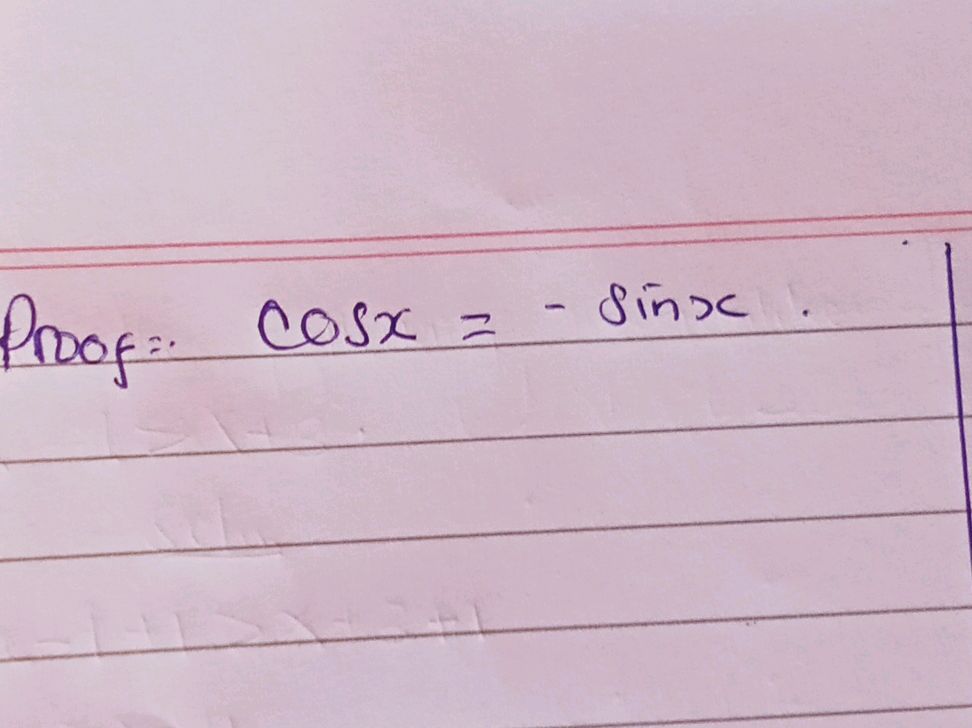 Proof:- cosx = - sinx .